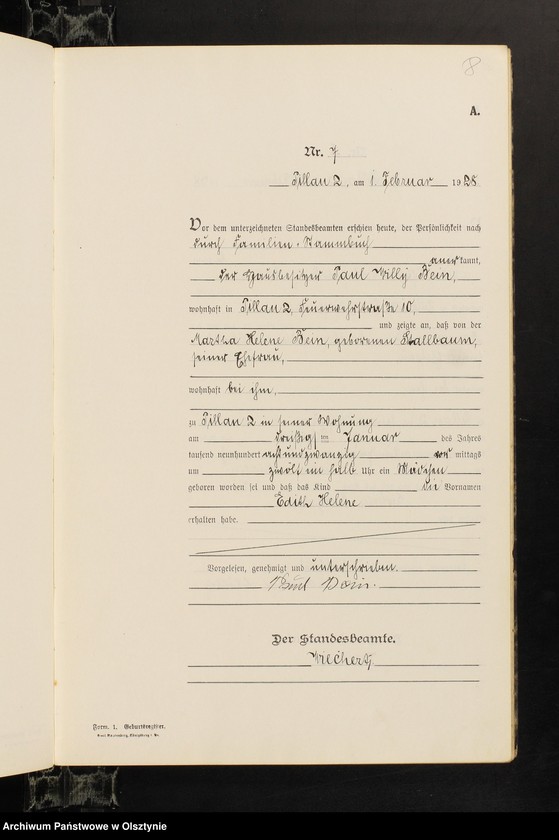 8
A.
Nr. 7
Pillau 2, am 1. Februar 1928
Vor dem unterzeichneten Standesbeamten erschien heute, der Persönlichkeit nach
durch Familien-Stammbuch
anerkannt,
der Hausbesitzer Paul Willy Bein,
wohnhaft in Pillau 2, Feuerwehrstraße 10,
und zeigte an, daß von der
Martha Helene Bein, geborenen Stallbaum,
seiner Ehefrau,
wohnhaft bei ihm,
zu Pillau 2 in seiner Wohnung
am dreißigsten Januar des Jahres
tausend neunhundert achtundzwanzig vor mittags
um zwölf ein halb Uhr ein Mädchen
geboren worden sei und daß das Kind die Vornamen
Edith Helene
erhalten habe.
Vorgelesen, genehmigt und unterschrieben.
Paul Bein.
Der Standesbeamte.
Wiechert
Form. 1. Geburtsregister.
Archiwum Państwowe w Olsztynie